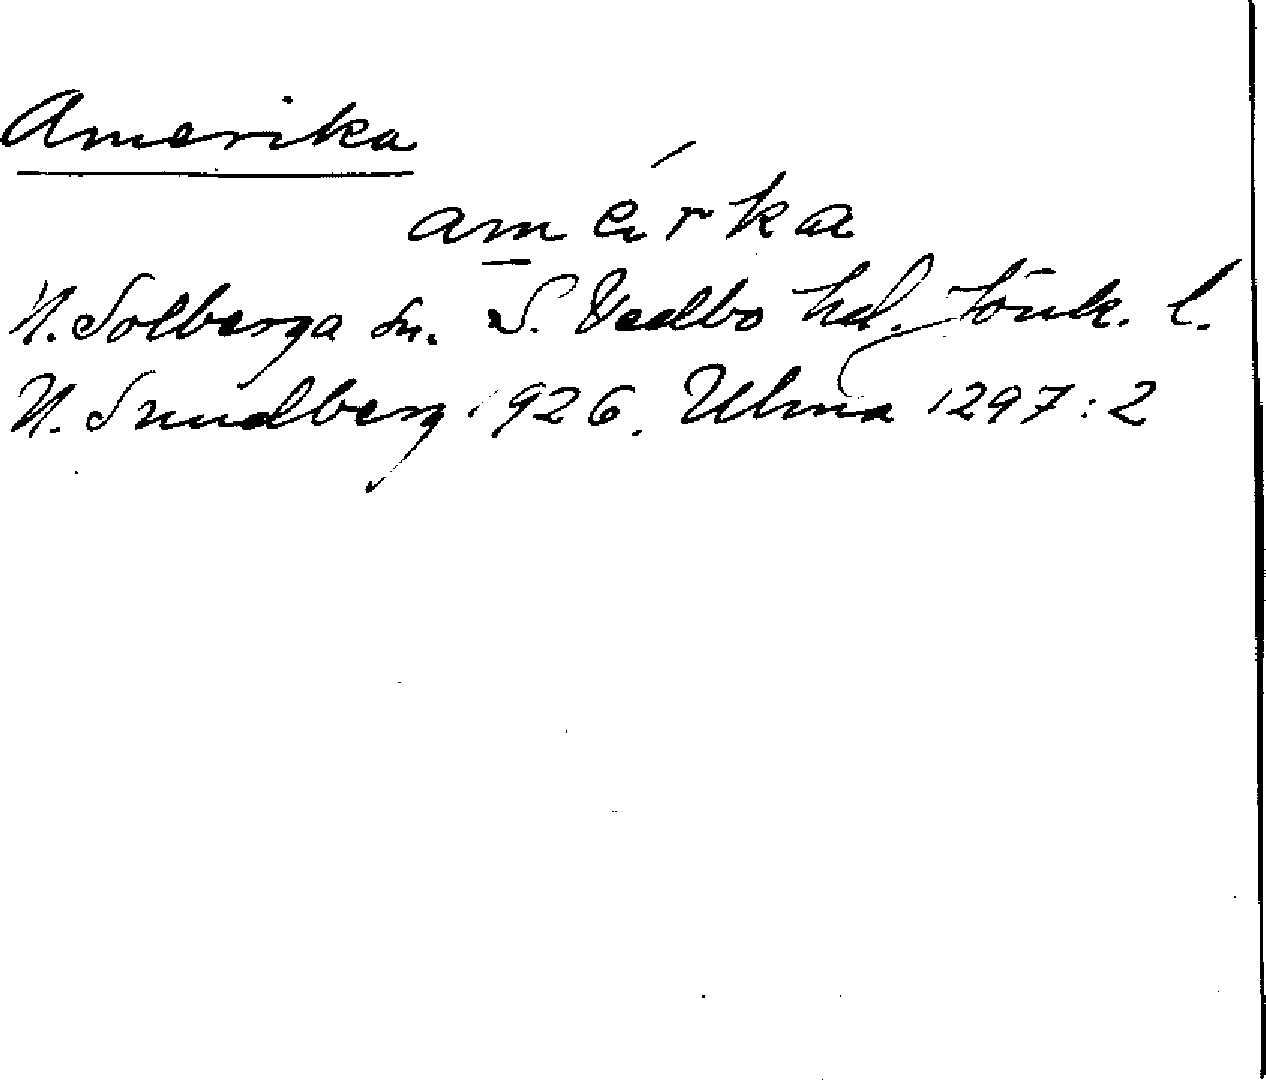 Amerika
amerka
N. Solberga sn. S. Vedbo hd. Jönk. l.
N. Sundberg 1926. Ulma 1297:2